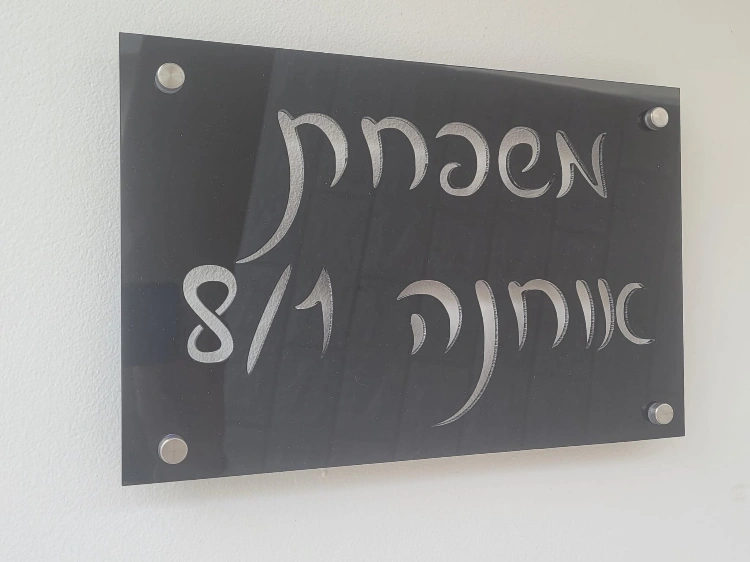 משפחת
אוחנה 8/1